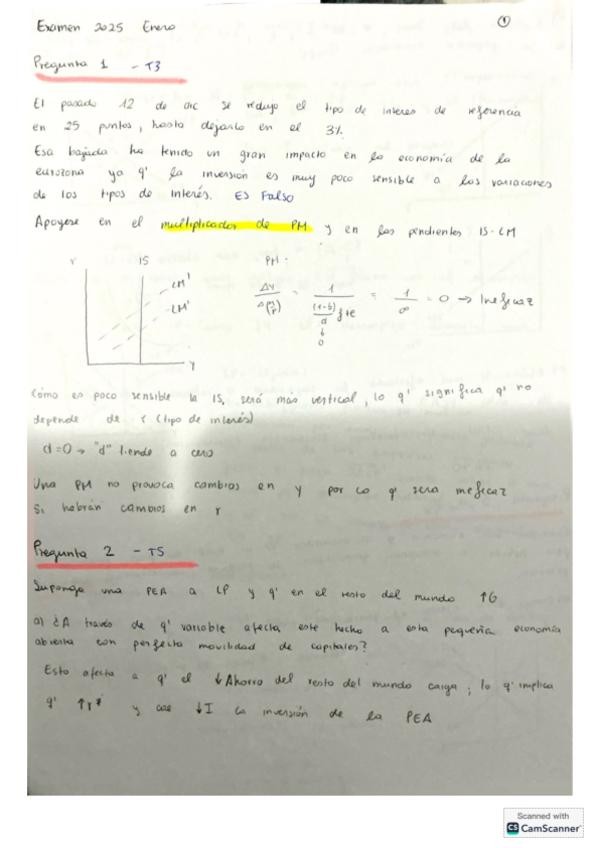 Examen 2025 Enero
1
Pregunta 1 - T3
El pasado 12 de dic se redujo el tipo de interes de referencia
en 25 puntos, hasta dejarlo en el 3%.
Esa bajada ha tenido un gran impacto en la economía de la
eurozona ya q' la inversión es muy poco sensible a las variaciones
de los tipos de interés. ES FALSO
Apoyese en el multiplicador de PM y en las pendientes IS-LM
r IS PM:
LM'
LM'
Y
ΔY = 1 = 1 = 0 → Ineficaz
(1-b) f+e ∞
d
↓
0
Cómo es poco sensible la IS, será mas vertical, lo q' significa q' no
depende de r (tipo de interés)
d=0 → "d" tiende a cero
Una PM no provoca cambios en y por lo q' sera ineficaz
Si habrán cambios en r
Pregunta 2 - T5
Suponga una PEA a LP y q' en el resto del mundo ↑G
a) ¿A través de q' variable afecta este hecho a esta pequeña economía
abierta con perfecta movilidad de capitales?
Esto afecta a q' el ↓Ahorro del resto del mundo caiga; lo q' implica
q' ↑r* y cae ↓I la inversión de la PEA
Scanned with
CS CamScanner